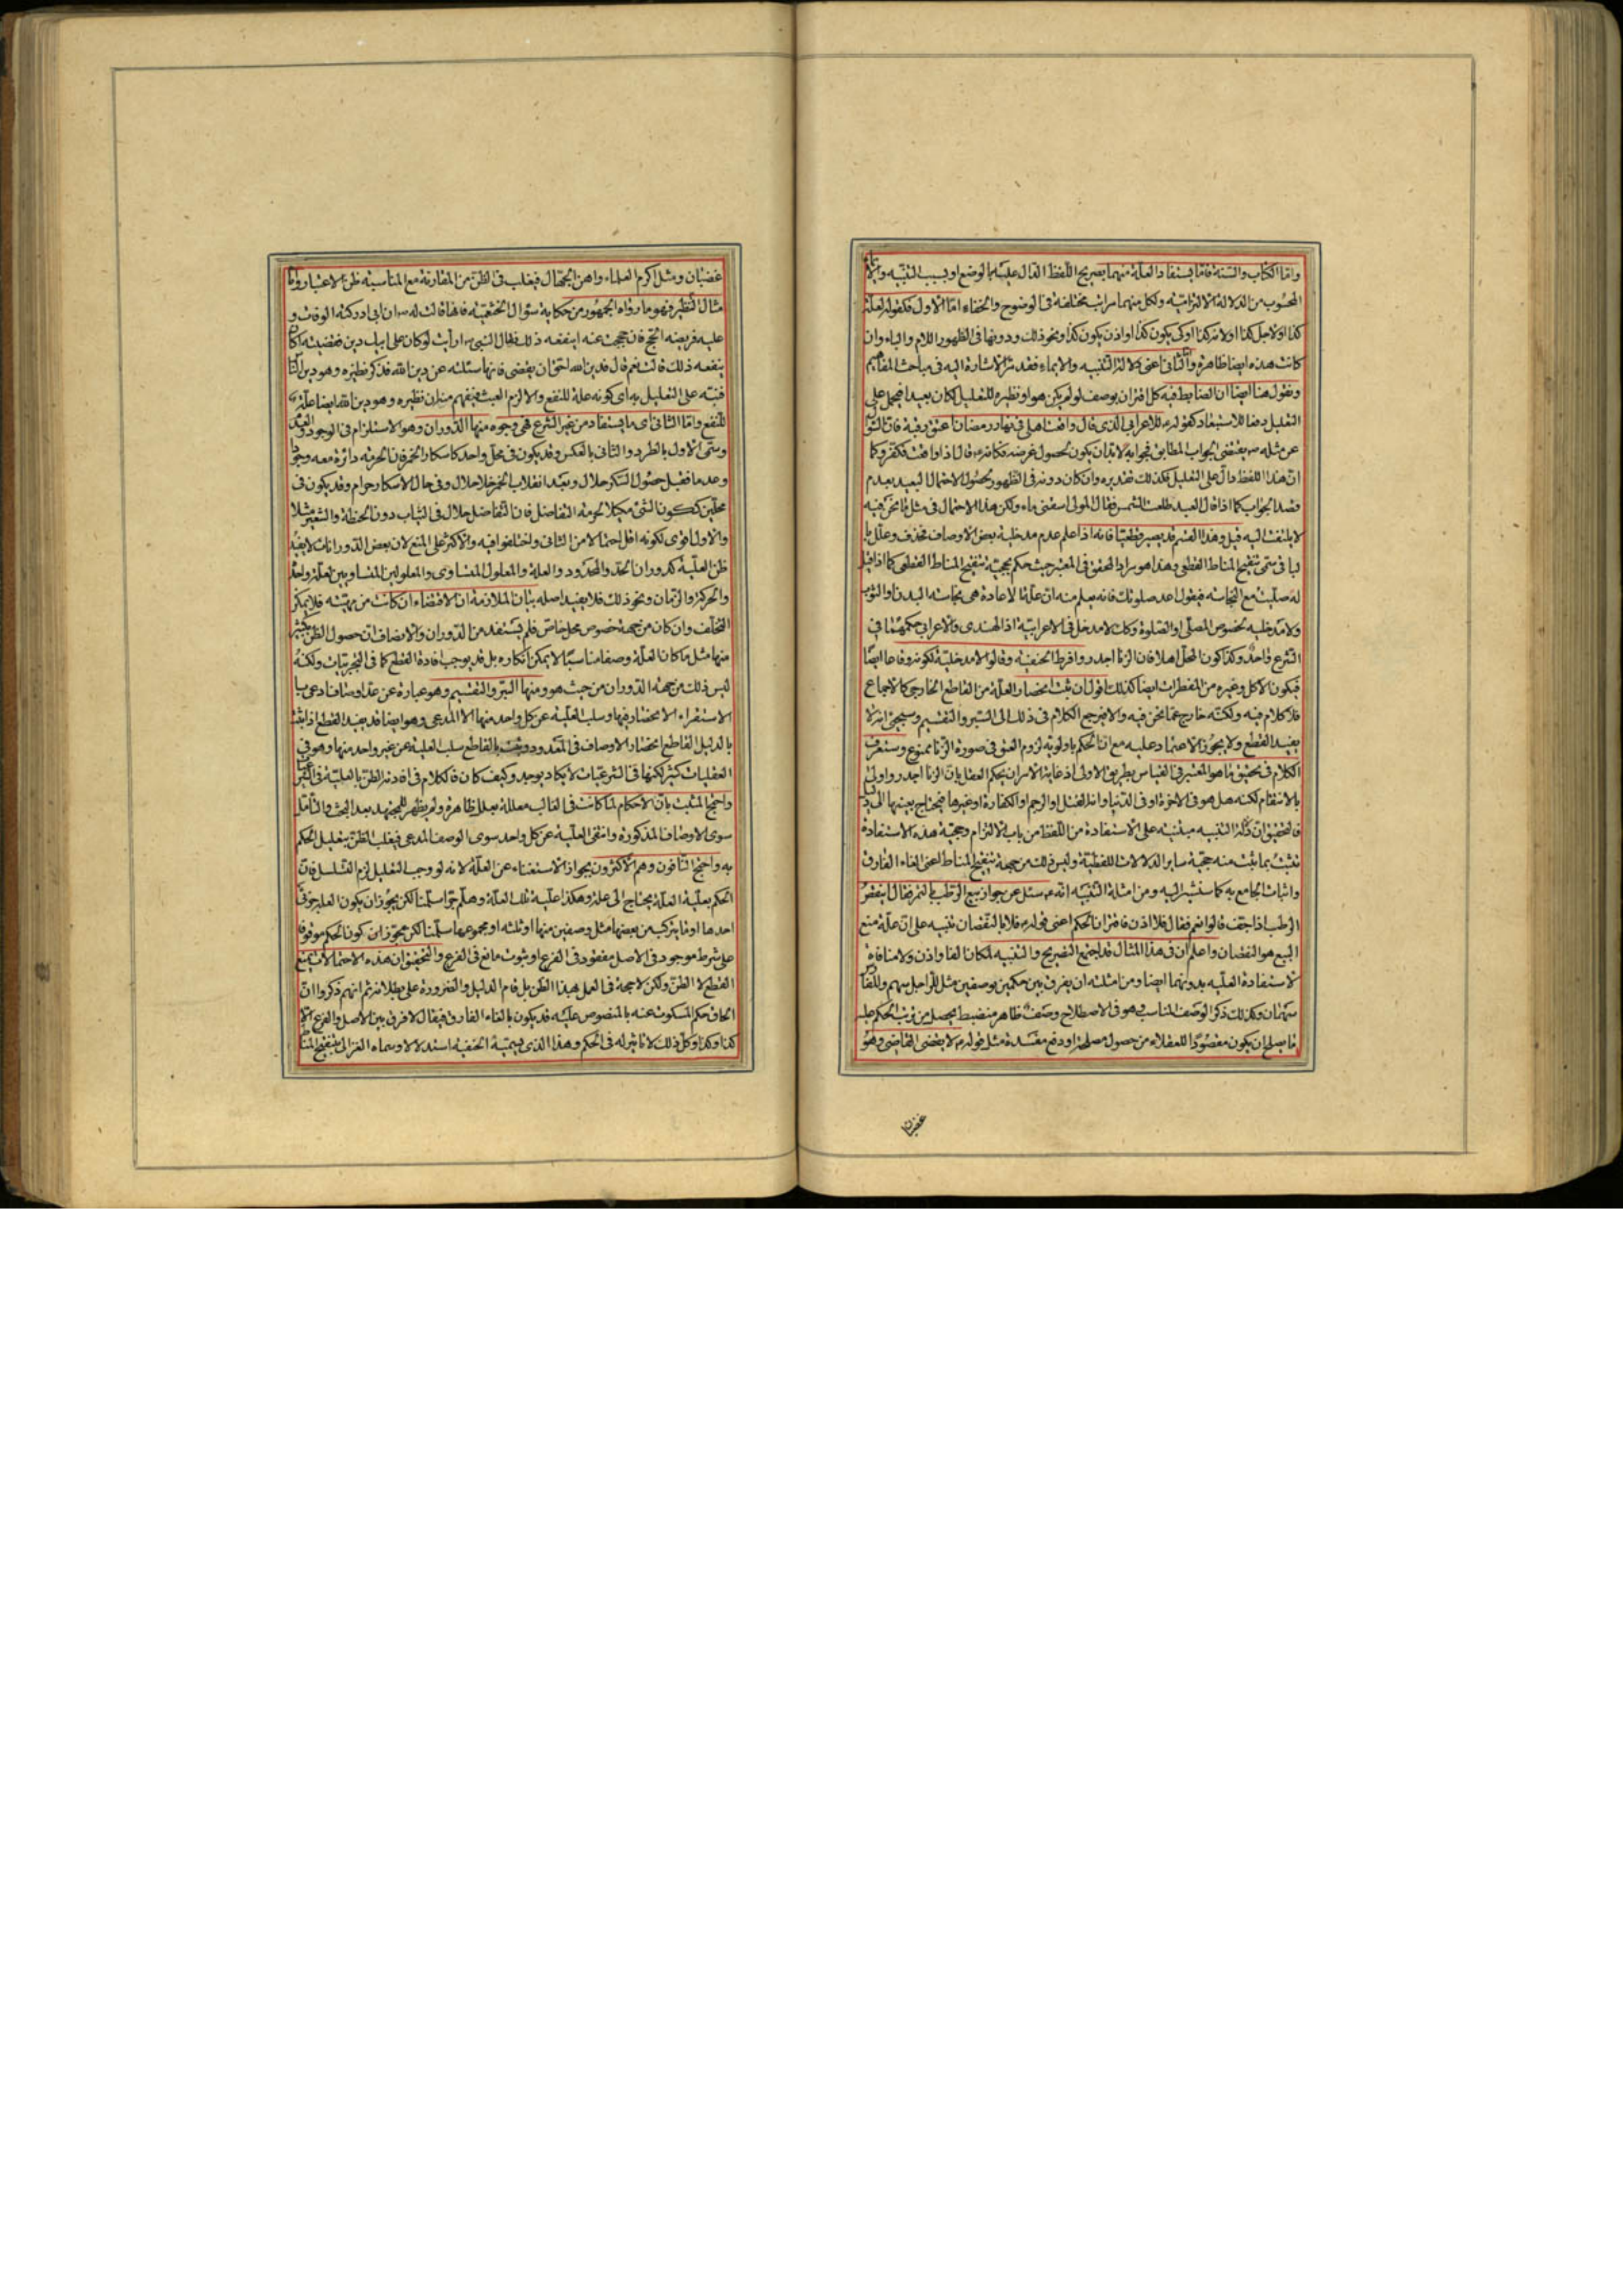 واما الكتاب والسنة فاما يستفاد العلة منهما بصريح اللفظ الدال عليه بالوضع او بسبب التنبيه والايماء
المحسوب من الدلالة الالتزامية ولكل منهما مراتب مختلفة فى الوضوح والخفاء اما الاول فكقوله لعلة
كذا او لاجل كذا او لانه كذا او كى يكون كذا او اذن يكون كذا ونحو ذلك ودونها فى الظهور اللام والباء وان
كانت هذه ايضا ظاهرة والثانى اعنى دلالة التنبيه والايماء فقد مر الاشارة اليه فى مباحث المفاهيم
ونقول هنا ايضا ان الضابط فيه كل اقتران بوصف لو لم يكن هو او نظيره للتعليل لكان بعيدا فيحمل على
التعليل دفعا للاستبعاد كقوله للاعرابى الذى قال واقعت اهلى فى نهار رمضان اعتق رقبة فان السؤال
عن مثله يقتضى الجواب المطابق فجوابه لا بد ان يكون لحصول غرضه فكانه قال اذا واقعت فكفر وكما
ان هذا اللفظ دال على التعليل فكذلك تقديره وان كان دونه فى الظهور لحصول الاحتمال البعيد بعدم
قصد الجواب كما اذا قال العبد طلعت الشمس فقال المولى اسقنى ماء ولكن هذا الاحتمال فى مثل ما نحن فيه
لا يلتفت اليه قيل وهذا القسم قد يصير قطعيا فانه اذا علم عدم مدخلية بعض الاوصاف فحذف وعلل بال
باقى سمى تنقيح المناط القطعى وهذا هو مراد المحقق فى المعتبر حيث حكم بحجية تنقيح المناط القطعى كما اذا قيل
له صليت مع النجاسة فيقول اعد صلوتك فانه يعلم منه ان علة الاعادة هى نجاسة البدن او الثوب
ولا مدخلية لخصوص المصلى او الصلوة وكذا لا مدخل فى الاعرابية اذ الهندى والاعرابى حكمهما فى
الشرع واحد وكذا كون المحل اهلا فان الزنا اجدر وافرط الحنفية وقالوا لا مدخلية لكونه وقاعا ايضا
فيكون الاكل وغيره من المفطرات ايضا كذلك اقول ان ثبت انحصار العلة من القاطع الخارجى كالاجماع
فلا كلام فيه ولكنه خارج عما نحن فيه والا فيرجع الكلام فى ذلك الى السبر والتقسيم وسيجئ انه لا
يفيد القطع ولا يجوز الاعتماد عليه مع ان الحكم باولوية لزوم العتق فى صورة الزنا ممنوع وستعرف
الكلام فى تحقيق ما هو المعتبر فى القياس بطريق الاولى اذ غاية الامر ان يحكم العقل بان الزنا اجدر واولى
بالانتقام لكنه هل هو فى الاخرة او فى الدنيا وانه القتل او الرجم او الكفارة او غيرها فيحتاج تعيينها الى دليل
فالتحقيق ان دلالة التنبيه مبتنية على الاستفادة من اللفظ من باب الالتزام وحجية هذه الاستفادة
تثبت بما يثبت منه حجية ساير الدلالات اللفظية وليس ذلك من جهة تنقيح المناط اعنى الغاء الفارق
واثبات الجامع به كما سنشير اليه ومن امثلة التنبيه انه سئل عن جواز بيع الرطب بالتمر فقال اينقص
الرطب اذا جف قالوا نعم فقال فلا اذن فاقتران الحكم اعنى قوله فلا بالنقصان تنبيه على ان علة منع
البيع هو النقصان واعلم ان فى هذا المثال قد اجتمع التصريح والتنبيه لمكان الفاء واذن ولا منافاة
لاستفادة العلية بدونهما ايضا ومن امثلته ان يفرق بين حكمين بوصفين مثل للراجل سهم وللفارس
سهمان وكذلك ذكر الوصف المناسب وهو فى الاصطلاح وصف ظاهر منضبط يحصل من ترتب الحكم عليه
ما يصلح ان يكون مقصودا للعقلاء من حصول مصلحة او دفع مفسدة مثل قوله لا يقضى القاضى وهو
غضبان
غضبان ومثل اكرم العلماء واهن الجهال فيغلب فى الظن من المقارنة مع المناسبة ظن الاعتبار واما
مثال النظير فهو ما رواه الجمهور من حكاية سؤال الخثعمية فانها قالت له ان ابى ادركته الوفاة و
عليه فريضة الحج فان حججت عنه اينفعه ذلك فقال النبى ارايت لو كان على ابيك دين فقضيته اكان
ينفعه ذلك قالت نعم قال فدين الله احق ان يقضى فانها سئلته عن دين الله فذكر نظيره وهو دين الناس
فنبه على التعليل به اى كونه علة للنفع والا لزم العبث فيفهم منه ان نظيره وهو دين الله ايضا علة
للنفع واما الثانى اى ما يستفاد من غير الشرع فهى وجوه منها الدوران وهو الاستلزام فى الوجود والعدم
وسمى الاول بالطرد والثانى بالعكس وقد يكون فى محل واحد كاسكار الخمر فان الحرمة دائرة معه وجودا
وعدما فقبل حصول السكر حلال وبعد انقلاب الخمر خلا حلال وفى حال الاسكار حرام وقد يكون فى
محلين ككون الشئ مكيلا لحرمة التفاضل فان التفاضل حلال فى الثياب دون الحنطة والشعير مثلا
والاول اقوى لكونه اقل احتمالا من الثانى واختلفوا فيه والاكثر على المنع لان بعض الدورانات لا يفيد
ظن العلية كدوران الحد والمحدود والعلة والمعلول المتساوى والمعلولين المتساويين لعلة واحدة
والحركة والزمان ونحو ذلك فلا يفيد اصله بثان الملازمة ان الاقتضاء ان كانت من مهيته فلا يمكن
التخلف وان كان من جهة خصوص محل خاص فلم يستفد من الدوران والانصاف ان حصول الظن بكثير
منها مثل ما كان العلة وصفا مناسبا لا يمكن انكاره بل قد يوجب افادة القطع كما فى التجربيات ولكنه
ليس ذلك من جهة الدوران من حيث هو ومنها السبر والتقسيم وهو عبارة عن عد اوصاف ادعى ب
الاستقراء الانحصار فيها وسلب العلية عن كل واحد منها الا المدعى وهو ايضا قد يفيد القطع اذا ثبت
بالدليل القاطع انحصار الاوصاف فى المعدود وثبت بالقاطع سلب العلية عن غير واحد منها وهو فى
العقليات كثير لكنها فى الشرعيات لا يكاد يوجد وكيف كان فالكلام فى افادته الظن بالعلية فى الشرعيات
واحتج المثبت بان الاحكام لما كانت فى الغالب معللة بعلل ظاهرة ولم يظهر للمجتهد بعد البحث والتامل
سوى الاوصاف المذكورة وانتفى العلية عن كل واحد سوى الوصف المدعى فيغلب الظن بتعليل الحكم
به واحتج النافون وهم الاكثرون بجواز الاستغناء عن العلة لانه لو وجب التعليل لزم التسلسل فان
الحكم بعلية العلة يحتاج الى علة وهكذا علية تلك العلة وهلم جرا سلمنا لكن يجوز ان يكون العلة جزء
احدها او ما يتركب من بعضها مثل وصفين منها او ثلثة او مجموعها سلمنا لكن يجوز ان كون الحكم موقوفا
على شرط موجود فى الاصل مفقود فى الفرع او ثبوت مانع فى الفرع والتحقيق ان هذه الاحتمالات يمنع
القطع لا الظن ولكن لا حجة فى العمل بهذا الظن بل قام الدليل والضرورة على بطلانه ثم انهم ذكروا ان
الحاق حكم المسكوت عنه بالمنصوص عليه قد يكون بالغاء الفارق فيقال لا فرق بين الاصل والفرع الا
كذا وكذا وكل ذلك لا تاثير له فى الحكم وهذا الذى يسميه الحنفية استدلالا وسماه الغزالى تنقيح المناط